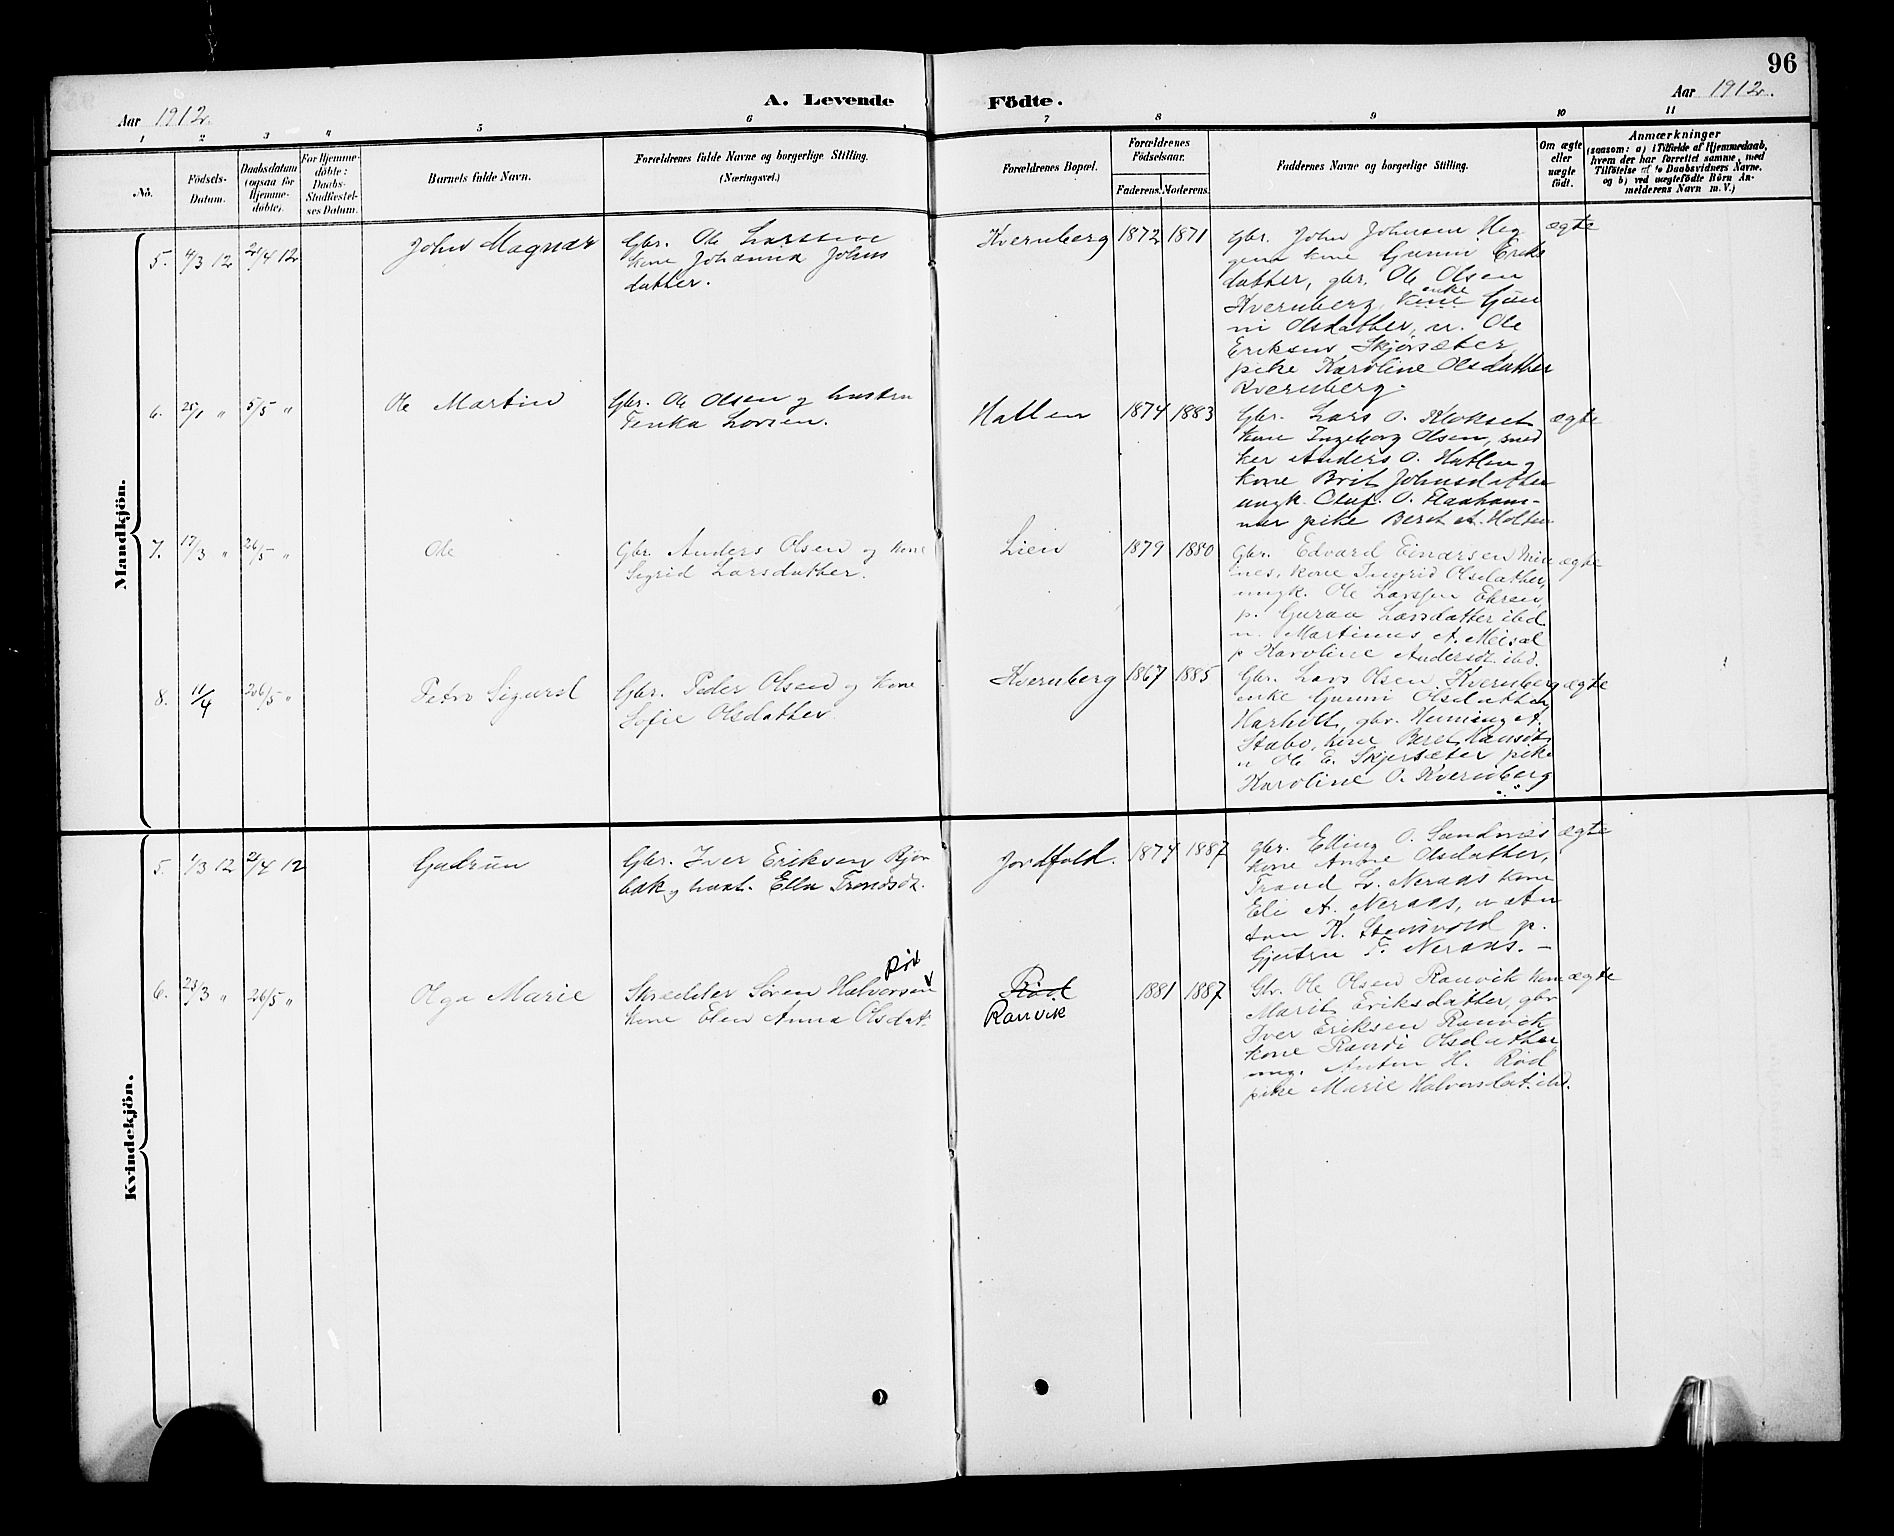 96
Aar 1912.
A. Levende Födte.
Aar 1912.
1 2 3 4 5 6 7 8 9 10 11
No.
Födsels-
Datum.
Daabsdatum
(ogsaa for
Hjemme-
döbte).
For Hjemme-
döbte:
Daabs-
Stadfæstel-
ses Datum.
Barnets fulde Navn.
Forældrenes fulde Navne og borgerlige Stilling.
(Næringsvei.)
Forældrenes Bopæl.
Forældrenes
Födselsaar.
Faderens. Moderens.
Faddernes Navne og borgerlige Stilling.
Om ægte
eller
uægte
födt.
Anmærkninger
(saasom: a) i Tilfælde af Hjemmedaab,
hvem der har forrettet samme, med
Tilföielse af to Daabsvidners Navne,
og b) ved uægtefödte Börn An-
melderens Navn m. V.)
Mandkjön.
5. 4/3 12 /4 12
John Magnar
Gbr. Ole Larssen
kone Johanna Johns
datter.
Kvernberg 1872 1871
Gbr. John Johnsen Heg
gem kone Gunni Eriks
datter, gbr. Ole Olsen
Kvernberg, kone enke Gun
ni Olsdatter, u. Ole
Eriksen Skjørsæter
pike Karoline Olsdatter
Kvernberg.
ægte
6. 25/1 " 5/5 "
Ole Martin
Gbr. Ole Olsen og hustru
Larsen.
Hatlen 1874 1883
Gbr. Lars O. Klokset
kone Ingeborg Olsen, sned
ker Anders O. Hatlen og
kone Brit Johnsdatter
ungk. Oluf O. Flaaham-
mer pike Beret A.
ægte
7. 17/3 " 26/5 "
Ole
Gbr. Anders Olsen og kone
Sigrid Larsdatter.
Lien 1879 1880
Gbr. Edvard Einarsen
kone Ingrid Olsdatter,
ungk. Ole Larssen
p. Guraa Larsdatter ibd.
u. Martinus A. Meisal
p Karoline Andersdt. ibd.
ægte
8. 11/4 26/5 "
Petro Sigurd
Gbr. Peder Olsen og kone
Sofie Olsdatter
Kvernberg 1867 1885
Gbr. Lars Olsen Kvernberg
enke Gunni Olsdatter
gbr. Henning A.
Stabo, kone Beret Hansdt.
u Ole E. Skjørsæter pike
Karoline O. Kvernberg
ægte
Kvindekjön.
5. 1/3 12 2/4 12
Gudrun
Gbr. Iver Eriksen Bjør
bak og hust. Ella Trondsdt.
Jordfald. 1874 1887
gbr. Elling O. Sandnes
kone Anne Olsdatter,
Trond L. Neraas kone
Eli A. Neraas, u An
ton K. Steinvold p.
Gjertru T. Neraas. –
ægte
6. 23/3 " 26/5 "
Olga Marie
Rød
Skrædder Søren Halvorsen
kone Elen Anna Olsdat.
Rød
Ranvik
1881 1887
Gbr. Ole Olsen Ranvik kone
Marit Eriksdatter, gbr
Iver Eriksen Ranvik
kone Randi Olsdatter
ung. Anton H. Rød
pike Marie Halvorsdat. ibd.
ægte